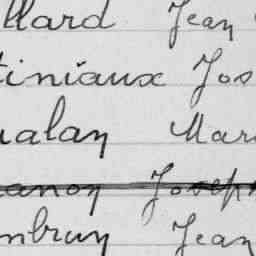 llard Jean
tiniaux Jos
ualan Mar
anon Joseph
mbrun Jean